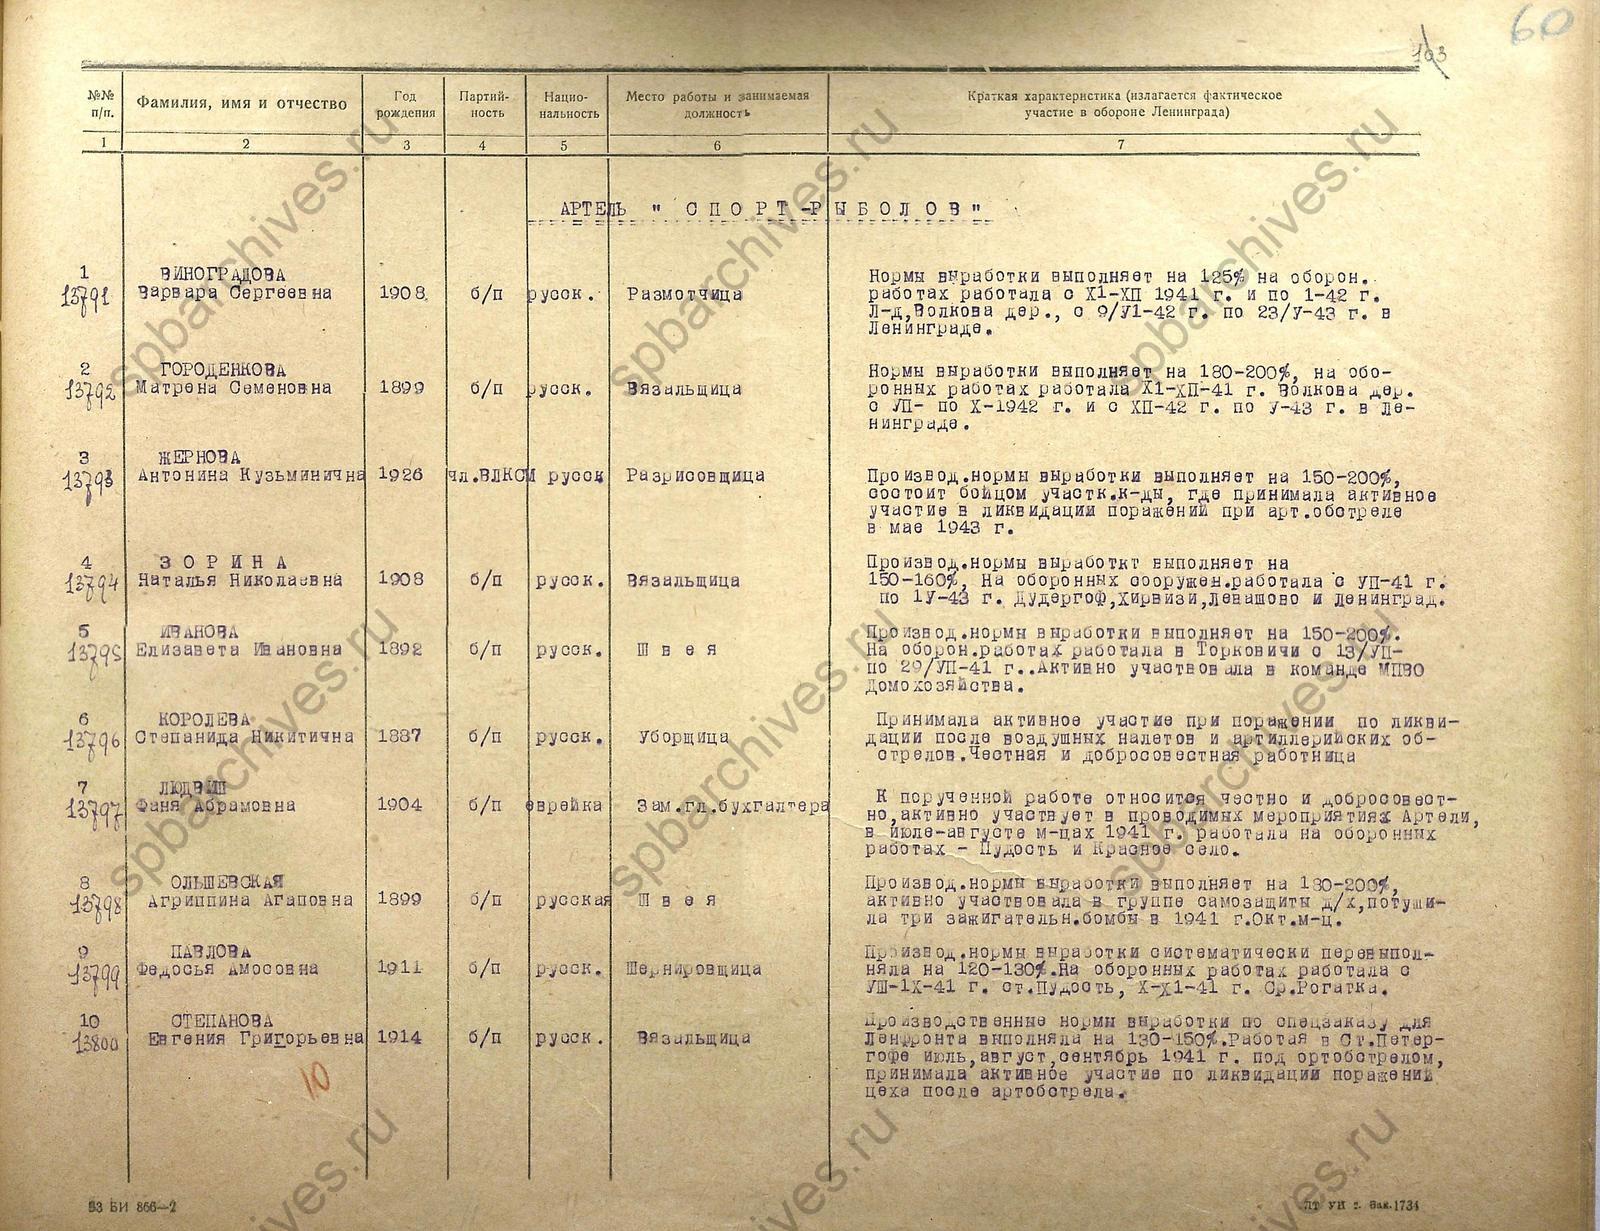 60
103
№№ п/п. Фамилия, имя и отчество Год рождения Партий-ность Нацио-нальность Место работы и занимаемая должность Краткая характеристика (излагается фактическое участие в обороне Ленинграда)
1 2 3 4 5 6 7
АРТЕЛЬ " СПОРТ-РЫБОЛОВ"
1 ВИНОГРАДОВА
13791 Варвара Сергеевна 1908 б/п русск. Размотчица
Нормы выработки выполняет на 125% на оборон.
работах работала с Х1-ХП 1941 г. и по 1-42 г.
Л-д,Волкова дер., с 9/У1-42 г. по 23/У-43 г. в
Ленинграде.
2 ГОРОДЕНКОВА
13792 Матрена Семеновна 1899 б/п русск. Вязальщица
Нормы выработки выполняет на 180-200%, на обо-
ронных работах работала Х1-ХП-41 г. Волкова дер.
с УП- по Х-1942 г. и с ХП-42 г. по У-43 г. в Ле-
нинграде.
3 ЖЕРНОВА
13793 Антонина Кузьминична 1926 чл.ВЛКСМ русск Разрисовщица
Производ.нормы выработки выполняет на 150-200%,
состоит бойцом участк.к-ды, где принимала активное
участие в ликвидации поражений при арт.обстреле
в мае 1943 г.
4 ЗОРИНА
13794 Наталья Николаевна 1908 б/п русск. Вязальщица
Производ.нормы выработкт выполняет на
150-160%, На оборонных сооружен.работала с УП-41 г.
по 1У-43 г. Дудергоф,Хирвизи,Левашово и Ленинград.
5 ИВАНОВА
13795 Елизавета Ивановна 1892 б/п русск. Швея
Производ.нормы выработки выполняет на 150-200%.
На оборон.работах работала в Торковичи с 13/УП-
по 29/УП-41 г..Активно участвовала в команде МПВО
Домохозяйства.
6 КОРОЛЕВА
13796 Степанида Никитична 1887 б/п русск. Уборщица
Принимала активное участие при поражении по ликви-
дации после воздушных налетов и артиллерийских об-
стрелов.Честная и добросовестная работница
7 ЛЮДВИП
13797 Фаня Абрамовна 1904 б/п еврейка Зам.гл.бухгалтера
К порученной работе относится честно и добросовест-
но,активно участвует в проводимых мероприятиях Артели,
в июле-августе м-цах 1941 г. работала на оборонных
работах - Пудость и Красное село.
8 ОЛЬШЕВСКАЯ
13798 Агриппина Агаповна 1899 б/п русская Швея
Производ.нормы выработки выполняет на 180-200%,
активно участвовала в группе самозащиты д/х,потуши-
ла три зажигательн.бомбы в 1941 г.Окт.м-ц.
9 ПАВЛОВА
13799 Федосья Амосовна 1911 б/п русск. Шернировщица
Производ.нормы выработки систематически перевыпол-
няла на 120-130%.На оборонных работах работала с
УШ-1Х-41 г. ст.Пудость, Х-Х1-41 г. Ср.Рогатка.
10 СТЕПАНОВА
13800 Евгения Григорьевна 1914 б/п русск. Вязальщица
Производственные нормы выработки по спецзаказу для
Ленфронта выполняла на 130-150%.Работая в Ст.Петер-
гофе июль,август,сентябрь 1941 г. под ортобстрелом,
принимала активное участие по ликвидации поражений
цеха после артобстрела.
10
ВЗ БИ 866—2
ЛТ УН з. Зак.1734
spbarchives.ru
spbarchives.ru
spbarchives.ru
spbarchives.ru
spbarchives.ru
spbarchives.ru
spbarchives.ru
spbarchives.ru
spbarchives.ru